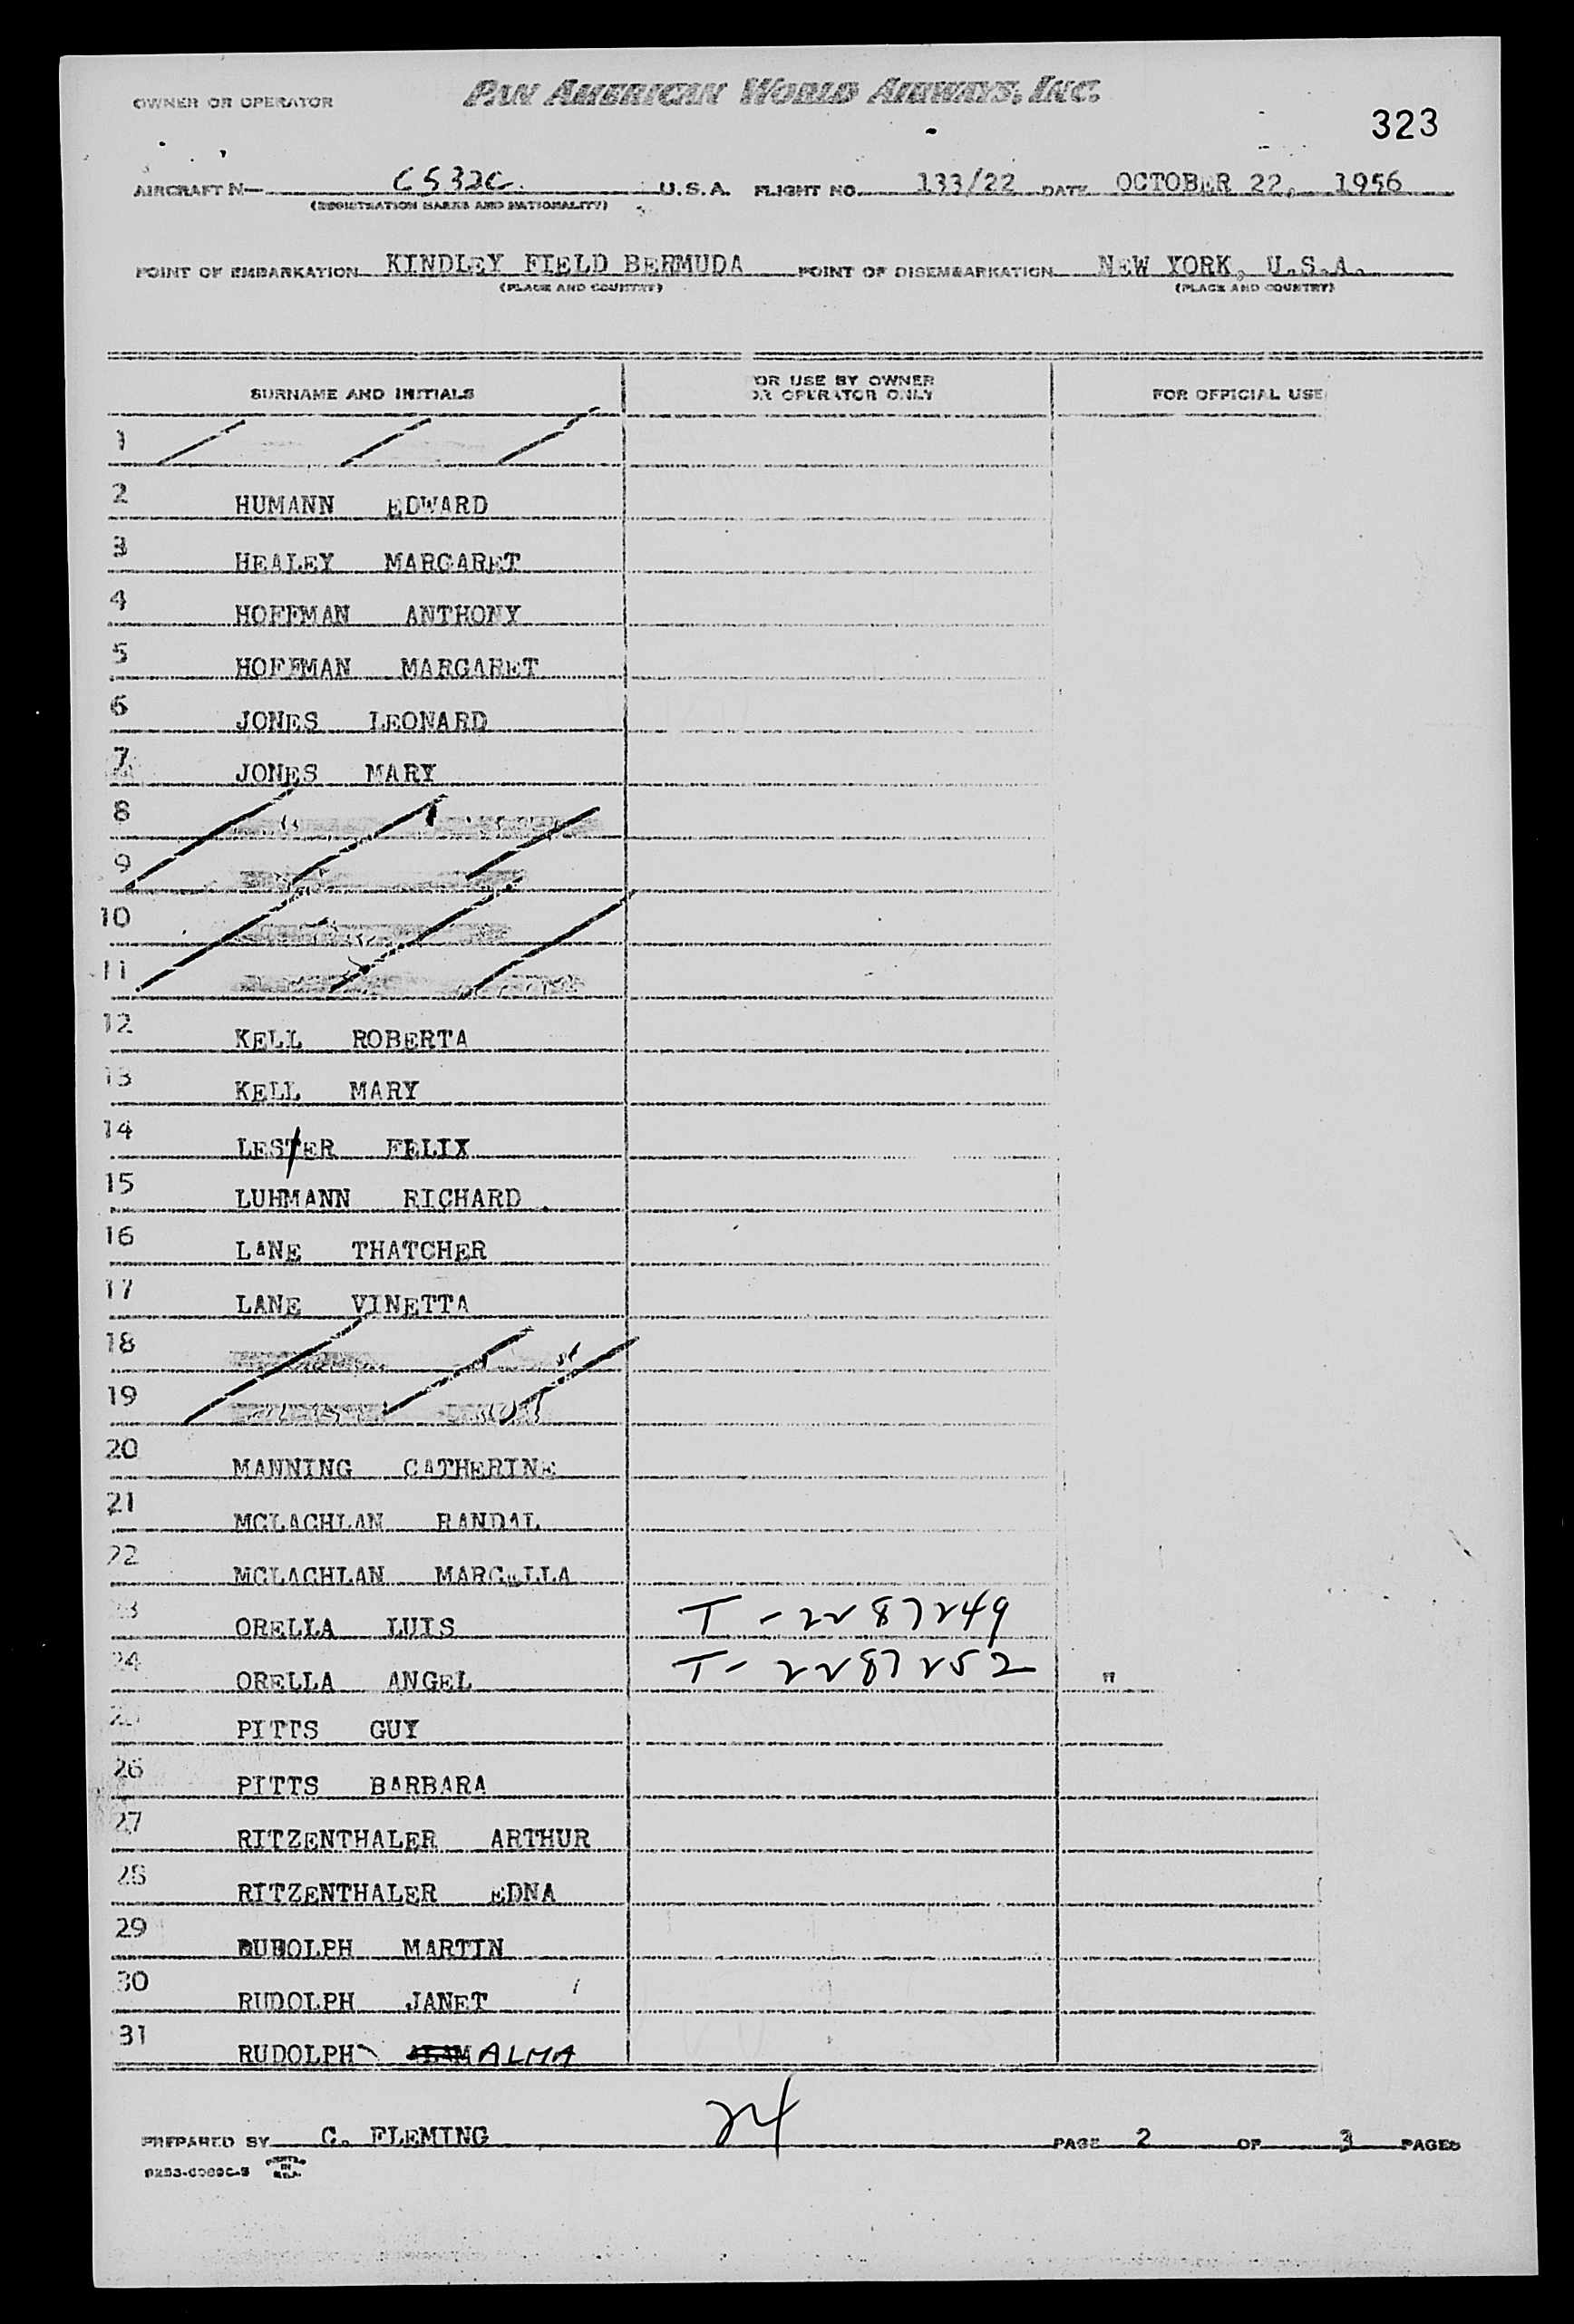 OWNER OR OPERATOR PAN AMERICAN WORLD AIRWAYS, INC.
323
AIRCRAFT N— C532C U.S.A. FLIGHT NO. 133/22 DATE OCTOBER 22, 1956
(REGISTRATION MARKS AND NATIONALITY)
POINT OF EMBARKATION KINDLEY FIELD BERMUDA POINT OF DISEMBARKATION NEW YORK, U.S.A.
(PLACE AND COUNTRY) (PLACE AND COUNTRY)
SURNAME AND INITIALS OR USE BY OWNER OR OPERATOR ONLY FOR OFFICIAL USE
1
2 HUMANN EDWARD
3 HEALEY MARGARET
4 HOFFMAN ANTHONY
5 HOFFMAN MARGARET
6 JONES LEONARD
7 JONES MARY
8
9
10
11
12 KELL ROBERTA
13 KELL MARY
14 LESTER FELIX
15 LUHMANN RICHARD
16 LANE THATCHER
17 LANE VINETTA
18
19
20 MANNING CATHERINE
21 MCLACHLAN RANDAL
22 MCLACHLAN MARCELLA
23 ORELLA LUIS T-2287249
24 ORELLA ANGEL T-2287252 "
25 PITTS GUY
26 PITTS BARBARA
27 RITZENTHALER ARTHUR
28 RITZENTHALER EDNA
29 RUDOLPH MARTIN
30 RUDOLPH JANET
31 RUDOLPH ALMA
PREPARED BY C. FLEMING 24 PAGE 2 OF 3 PAGES
PRINTED IN U.S.A.